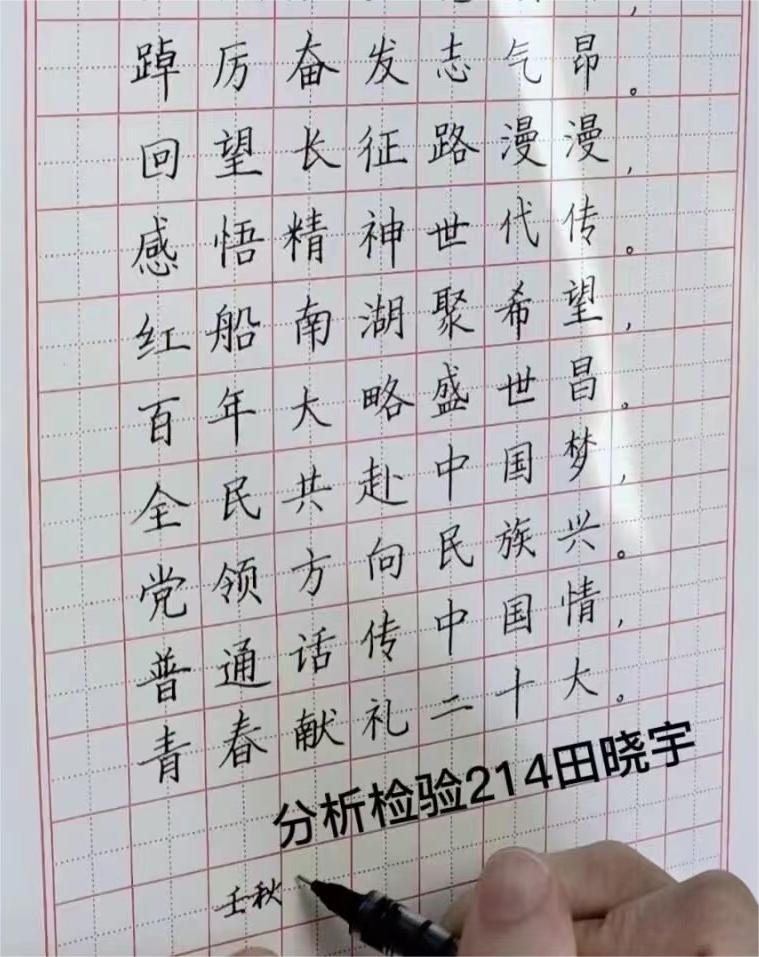 踔厉奋发志气昂。
回望长征路漫漫，
感悟精神世代传。
红船南湖聚希望，
百年大略盛世昌。
全民共赴中国梦，
党领方向民族兴。
普通话传中国情，
青春献礼二十大。
分析检验214田晓宇
壬秋